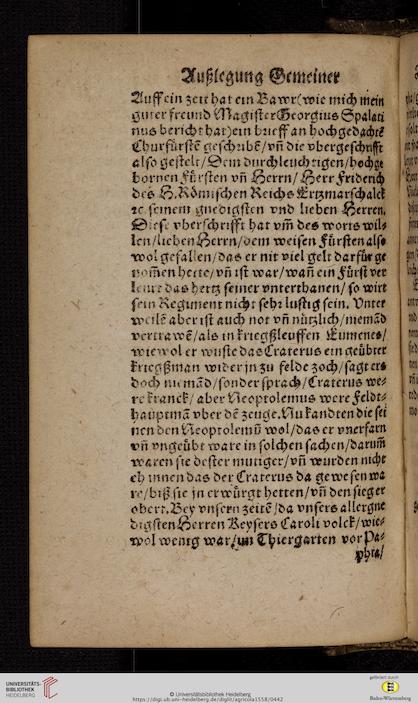 Außlegung Gemeiner
Auff ein zeit hat ein Bawr (wie mich mein
guter freund Magister Georgius Spalati
nus bericht hat) ein brieff an hochgedachtē
Churfürstē geschribē / vñ die vbergeschrifft
also gestelt / Dem durchleuchtigen / hochge
bornen Fürsten vñ Herrn / Herr Friderich
des H. Römischen Reichs Ertzmarschalck
ꝛc. seinem gnedigsten vnd lieben Herren.
Diese vberschrifft hat vm̄ des worts wil-
len / lieben Herrn / dem weisen Fürsten also
wol gefallen / das er nit viel gelt darfür ge
nom̄en hette / vñ ist war / wañ ein Fürst ver
leurt das hertz seiner vnterthanen / so wirt
sein Regiment nicht sehr lustig sein. Vnter
weilē aber ist auch not vñ nützlich / niemād
vertrawē / als in kriegßleuffen Eumenes /
wiewol er wuste das Craterus ein geübter
kriegßman wider jn zu felde zoch / sagt ers
doch niemād / sonder sprach / Craterus we-
re kranck / aber Neoptolemus were Feldt-
hauptmā vber dē zeuge. Nu kandten die sei
nen den Neoptolemū wol / das er vnerfarn
vñ vngeübt ware in solchen sachen / darum̄
waren sie dester mutiger / vñ wurden nicht
eh innen das der Craterus da gewesen wa
re / biß sie jn erwürgt hetten / vñ den sieg er
obert. Bey vnsern zeitē / da vnsers allergne
digsten Herren Keysers Caroli volck / wie-
wol wenig war / im Thiergarten vor Pa-
phia /
UNIVERSITÄTS-
BIBLIOTHEK
HEIDELBERG
© Universitätsbibliothek Heidelberg
https://digi.ub.uni-heidelberg.de/diglit/agricola1558/0442
gefördert durch
Baden-Württemberg